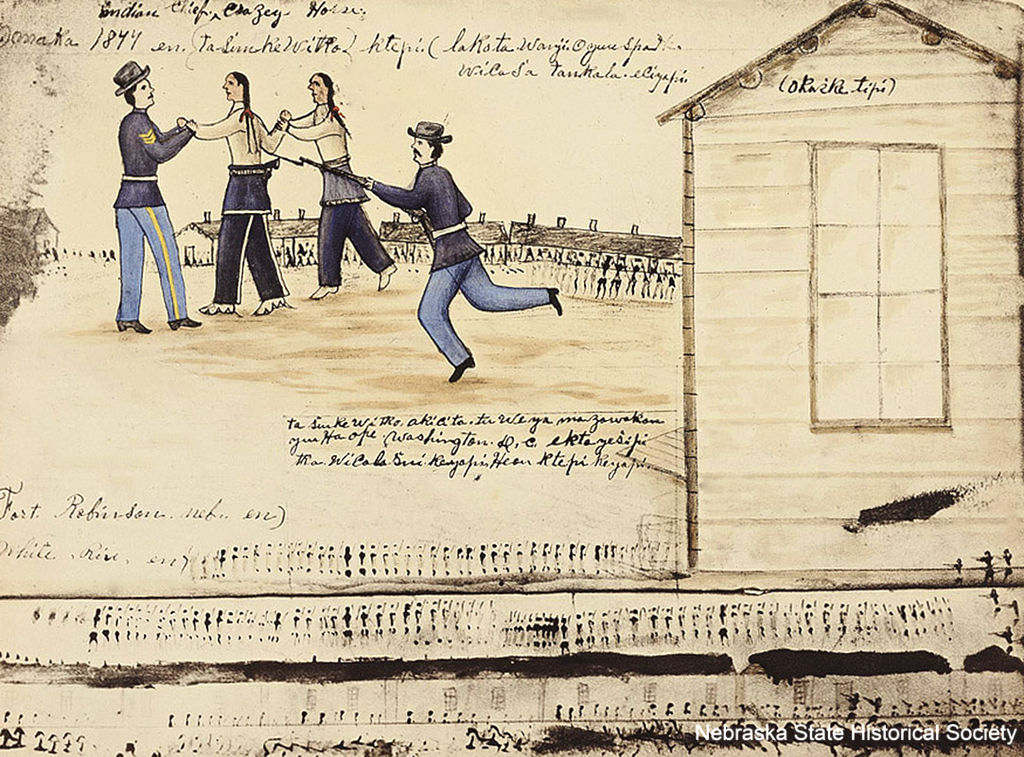 Indian Chief, Crazey Horse.
1877 en. (Ta sunke Witko) ktepi. (lakota Wanji Oyuspa
Wicasa tankala. eciyapi
(Okaske tipi)
ta sunke Witko. akicita. tu Weya mazawakan
on Ha ope Washington. D, c. ekta yesipi
tka. Wicala sni keyapi, Heon ktepi keyapi.
Fort. Robinson. neb. en)
White. en)
Nebraska State Historical Society